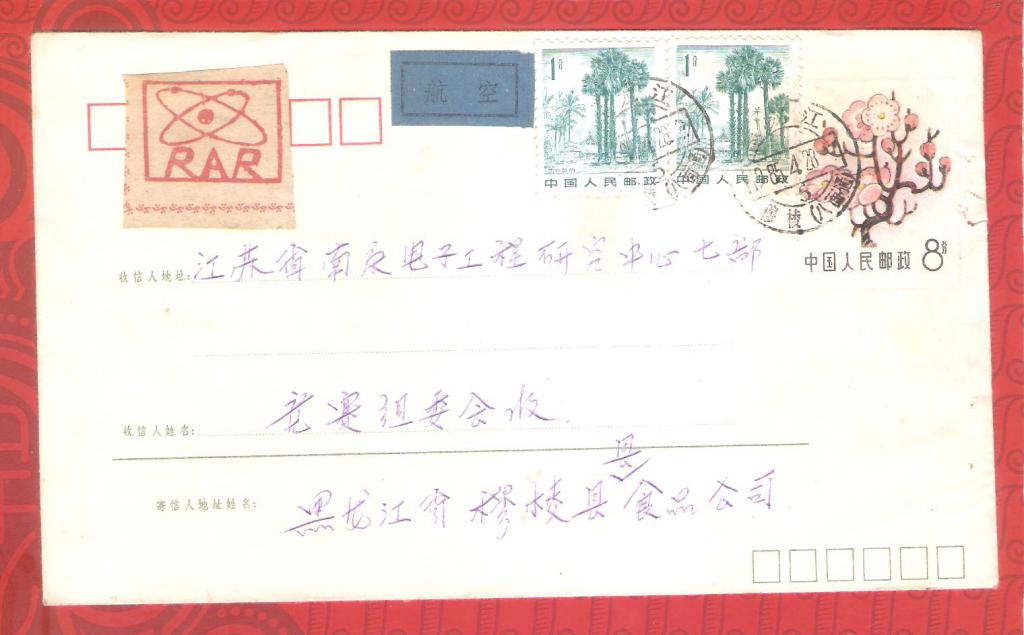 RAR
航空
1分
1分
中国人民邮政
中国人民邮政
中国人民邮政 8分
江
江
85.4.28
收信人地址: 江苏省南京电子工程研究中心七部
收信人姓名: 竞赛组委会收
县
寄信人地址姓名: 黑龙江省穆棱县食品公司